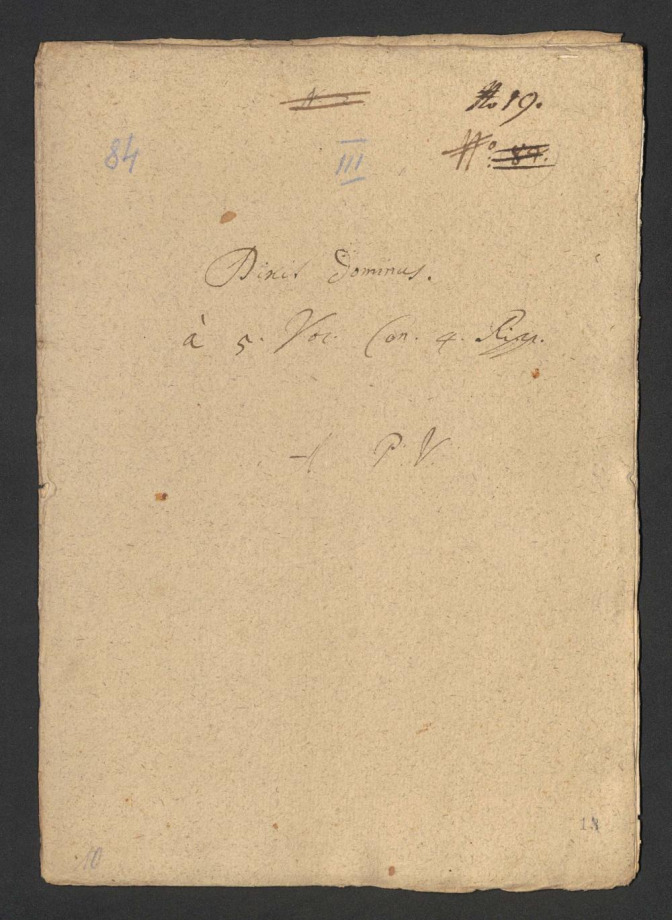 No 19.
84
III
No 84.
Dixit Dominus.
à 5. Voc. Con. 4. Rip.
P. V.
18
10